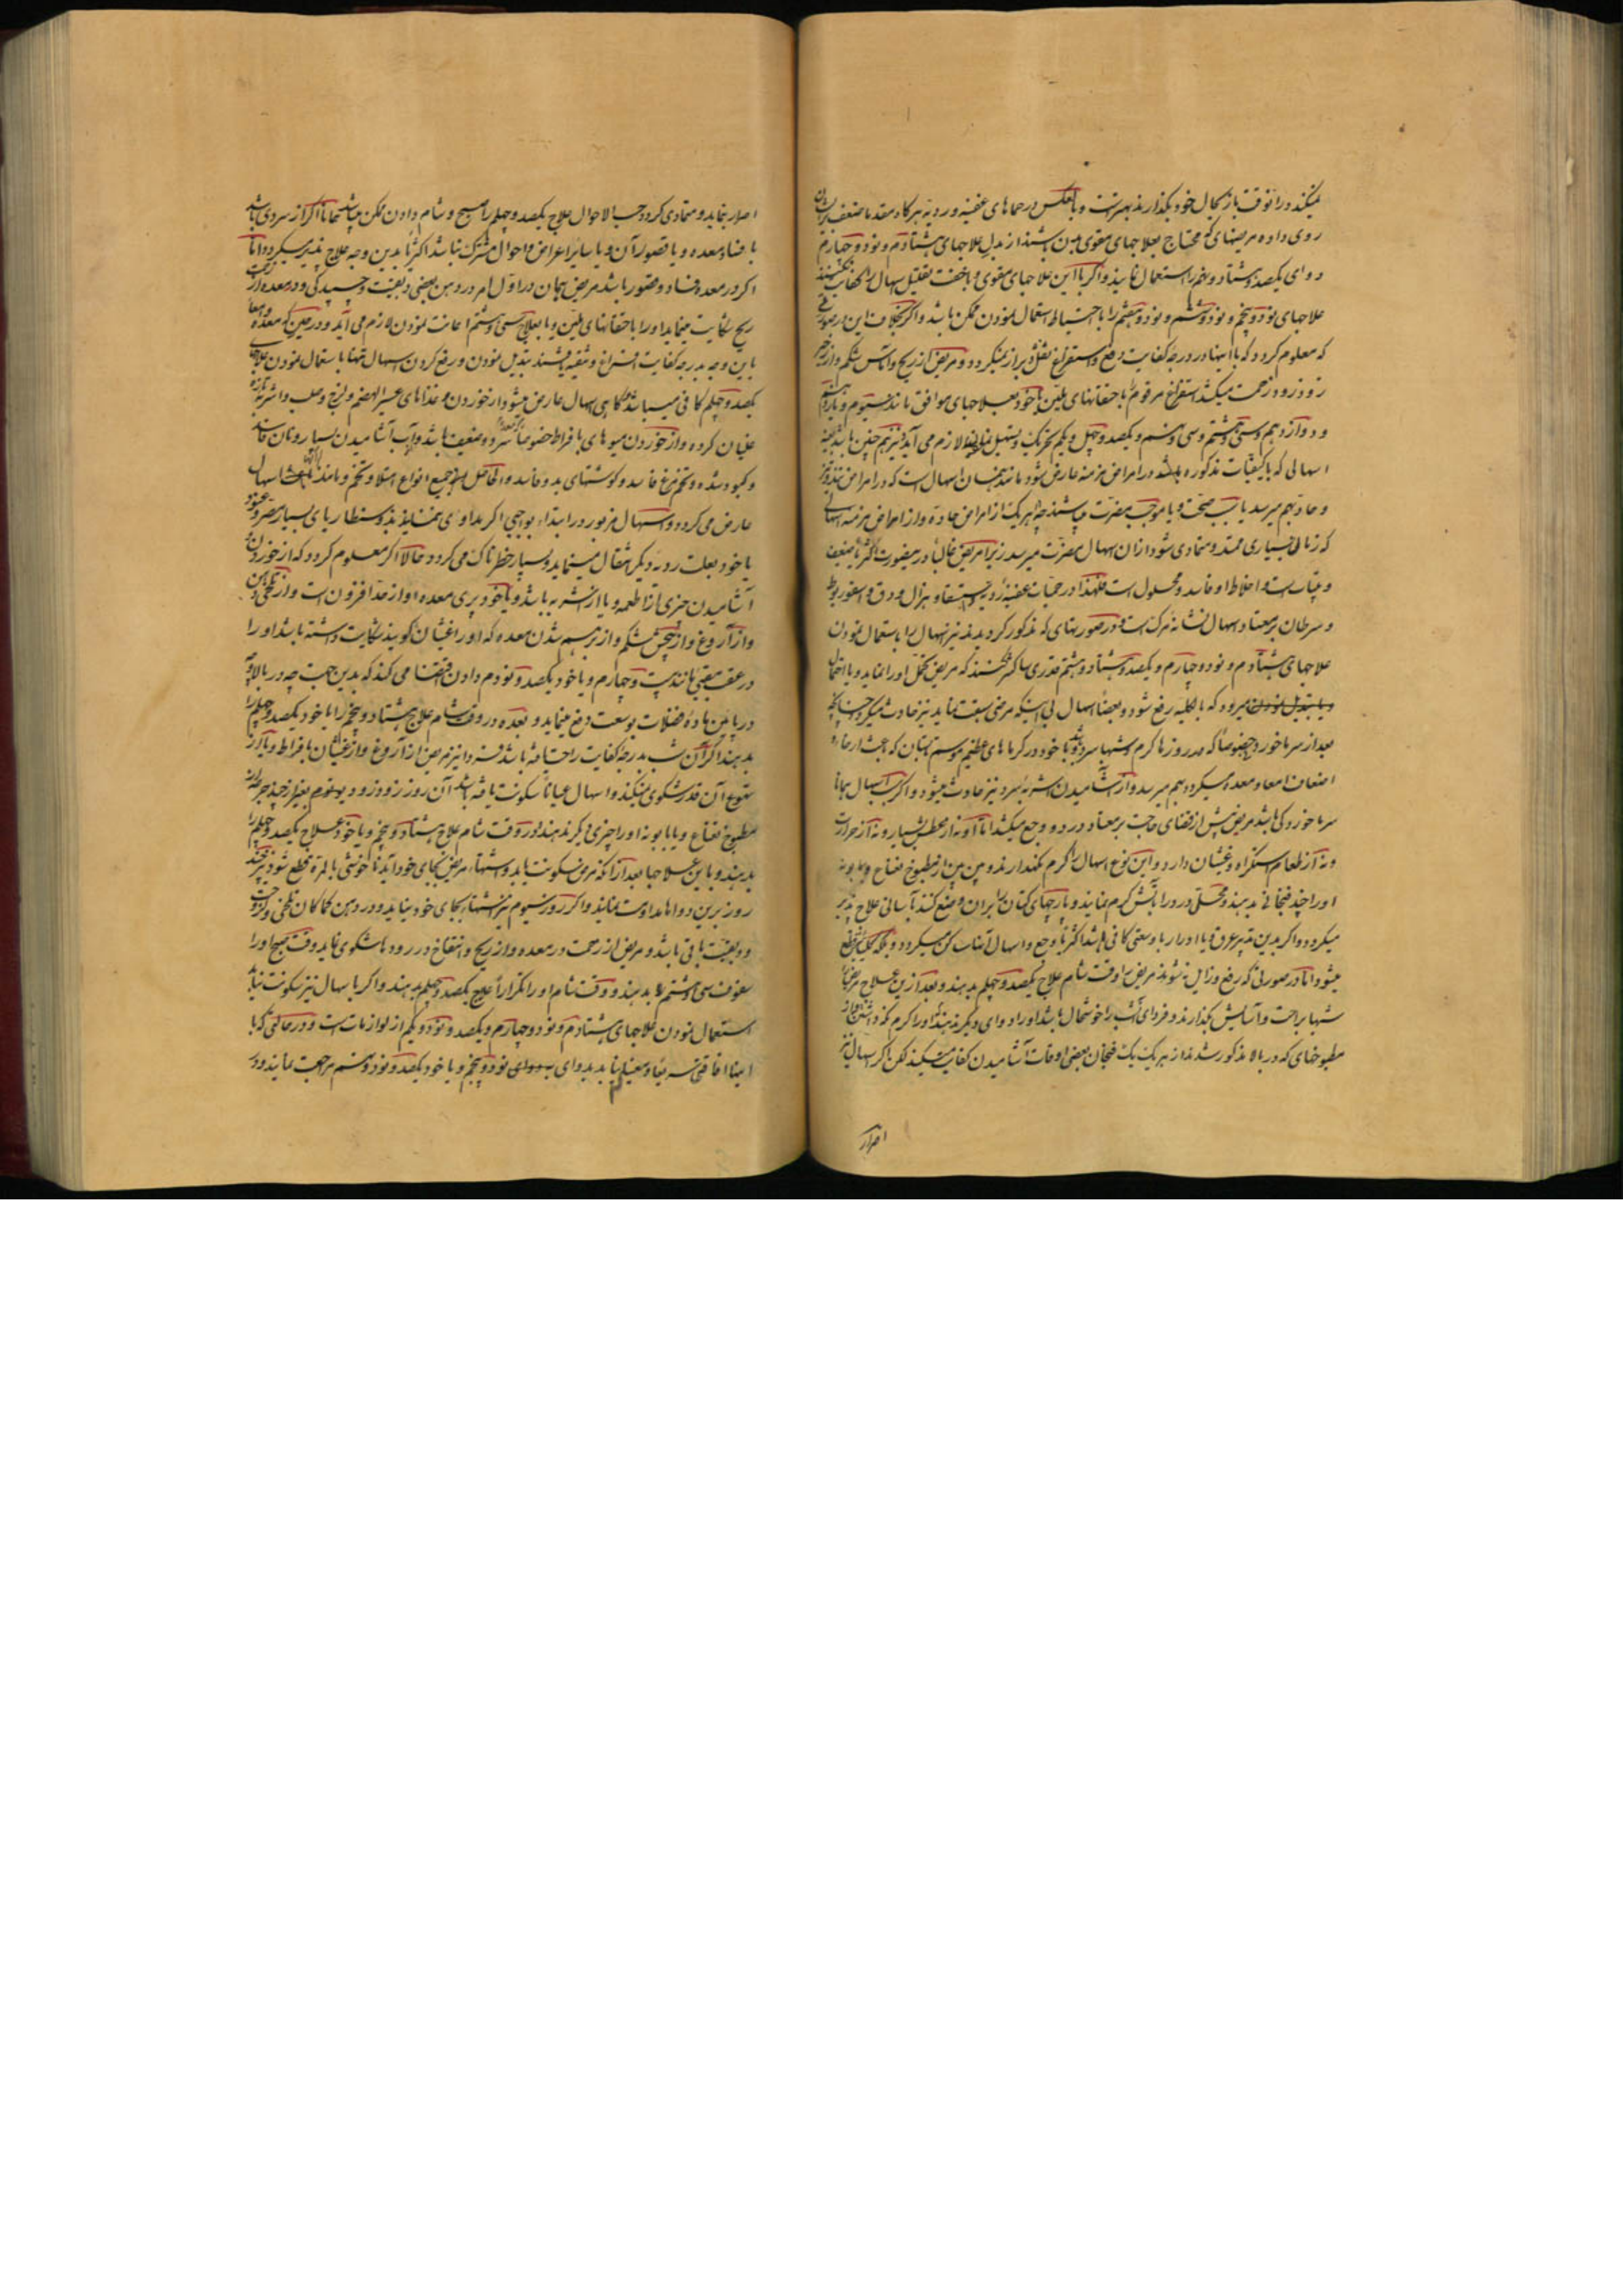 میکند در آنوقت باز بحال خود بکذارند بهتر است و بالعکس در حماهای عفنیه و ردیه هر کاه مقدما ضعف
روی داده مریضهای که محتاج بعلاجهای مقوی باشند از بدل علاجهای هشتادم و نود و چهارم
دوای یکصد و هشتاد و نهم را استعمال نمایند و اکر با این علاجهای مقوی و با خفت تقلیل اسهال را کفایت نکنند
علاجهای نود و پنجم و نود و ششم و نود و هفتم را با احتیاط استعمال نمودن ممکن باشد و اکر بخلاف این در صورتی
که معلوم کردد که با اینها در درجه کفایت دفع و استفراغ ثفل و براز نمیکردد و مریض از ریح و اماس شکم و از زحیر
زود زود زحمت میکشد استفراغ مرقوم را با حقنهای ملین یا خود بعلاجهای موافق مانند سیوم و یازدهم
و دوازدهم و سی و هشتم و سی و نهم و یکصد و چهل و یکم تحریک و تسهیل نمایند لازم می آید نیز هم چنین باشد
اسهالی که با کیفیات مذکوره باشد در امراض مزمنه عارض شود مانند همان اسهال است که در امراض
و حاد بهم میرسد یا سبب صحت و یا موجب مضرت میباشند چه هر یک از امراض حاده و از امراض مزمنه اسهالی
که زمانی بسیاری ممتد و متمادی شود از ان اسهال مضرت میرسد زیرا مریض غالبا در اینصورت اکثریا ضعیف
و بیتاب است و اخلاط او فاسد و محلول است فلهذا در حمیات عفنیه ردیه و استسقا و هزال و دق و اسقوربوط
و سرطان بر معتاد اسهال نشانه مرک است و در صورتهای که مذکور کردید نیز اسهال را باستعمال نمودن
علاجهای هشتادم و نود و چهارم و یکصد و هشتاد و هشتم قدری ساکن کنند که مریض تحمل او را نماید و یا احتمال
میرود که بالکلیه رفع شود و بعضا اسهال بی انکه مرضی سبقت نماید نیز حادث میکردد چنانچه
بعد از سرما خوردن خصوصا که در روزها کرم و شبها سرد باشد یا خود در کرماهای عظیم موسم تابستان که باعث ارخا و
اضعاف امعا و معده میکردد بهم میرسد و از آشامیدن اشربه سرد نیز حادث میشود و اکر سبب اسهال همانا
سرما خوردکی باشد مریض پیش از قضای حاجت بر معتاد درد و وجع میکشد اما آ نه از عطش بسیار و نه از حرارت
و نه از طعام استکراه و غثیان دارد و این نوع اسهال را کرم نکهدارند و پی در پی از مطبوخ نعناع و بابونه
او را چند فنجانی بدهند و محل درد را بآتش کرم نمایند و پارچهای کتان بر ان وضع کنند بآسانی علاج پذیر
میکردد و اکر بدین تدبیر عرق و یا ادرار با وسعتی کافی باشد اکثریا وجع و اسهال آنا ساکن میکردد و بلکه کلیا منقطع
میشود اما در صورتی که رفع و زایل نشوند مریض را وقت شام علاج یکصد و چهلم بدهند و بعد از این علاج مریض را
شبها براحت و آسایش بکذارند و فردای آنشب اکر خوشحال باشد او را دوای دیکر ندهند او را کرم کرفتن و از
مطبوخهای که در بالا مذکور شدند از هر یک یک فنجان بعضی اوقات آشامیدن کفایت میکند لکن اکر اسهال نیز
اصرار
اصرار نماید و متمادی کردد حسب الاحوال علاج یکصد و چهلم را صبح و شام دادن ممکن میباشد همانا اکر از سردی باشد
با فساد معده و یا قصور آن و یا سایر اعراض و احوال مشترک نباشد اکثریا بدین وجه علاج پذیر میکردد و اما
اکر در معده فساد و قصور باشد مریض همان در اول امر در دهن بعضی دبقیت و چسپیدکی و در معده از
ریح شکایت مینماید او را با حقنهای ملین و یا بعلاج سی و هشتم اعانت نمودن لازم می آید و در حین که معده و امعا
باین وجه بدرجه کفایت استفراغ و تنقیه یافتند تبدیل نمودن و رفع کردن اسهال تنها باستعمال نمودن علاجهای
یکصد و چهلم کافی میباشد کاهی اسهال عارض میشود از خوردن غذاهای عسیر الهضم و لزج و صلب و اشربه تازه
غلیان کرده و از خوردن میوهای با فراط خصوصا که معده سرد و ضعیف باشد و آب آشامیدن بسیار و نان فاسد
و کبود شده و تخم مرغ فاسد و کوشتهای بد و فاسد و الحاصل از جمیع انواع امتلا و تخم و مانند اینها اسهال
عارض می کردد و اسهال مزبور در ابتداء بواجبی اکر بمداوای نمایند بذوسنطاریای بسیار مضر و عنود
یا خود بعلت ردیه دیکر انتقال مینماید و بسیار خطرناک می کردد حالا اکر معلوم کردد که از خوردن و
آشامیدن چیزی از اطعمه و یا از اشربه باشد و یا خود پری معده او از حد افزون است و از تلخی دهن
و از آروغ و از پیچش شکم و از برهم شدن معده که او را غثیان کویند شکایت داشته باشد او را
در عقب مقیئی مانند بیست و چهارم و یا خود یکصد و نودم دادن اقتضا می کند که بدین جهت چه در بالا و چه
در پایین ماده فضلات بوسعت دفع مینماید و بعده در وقت شام علاج هشتاد و پنجم را یا خود یکصد و چهلم را
بدهند اکر آن شب بدرجه کفایت راحت یافته باشد فردا نیز مریض از آروغ و از غثیان با فراط و یا از
تهوع آن قدر شکوی نمیکند و اسهال عیانا سکونت یافته باشد آن روز زود زود بغیر از چند جرعه
مطبوخ نعناع و یا بابونه او را چیزی دیکر ندهند در وقت شام علاج هشتاد و پنجم و یا خود علاج یکصد و چهلم را
بدهند و با این علاجها بعد از انکه مرض سکونت یابد و اشتهاء مریض بجای خود آید تا ناخوشی بالمره قطع شود نیز چند
روز برین دواها مداومت نمایند و اکر روز سیوم نیز اشتها بجای خود نیاید و در دهن کما کان تلخی و لزوجت
و دبقیت باقی باشد و مریض از زحمت در معده و از ریح و انتفاخ در رودها شکوی نماید وقت صبح او را
سفوف سی و هشتم بدهند و وقت شام او را تکرارا علاج یکصد و چهلم بدهند و اکر با اسهال نیز سکونت نیابد
استعمال نمودن علاجهای هشتادم و نود و چهارم و یکصد و نود و یکم از لوازمات است و در حالتی که با
اینها افاقتی سریعا و معینا نیابد بدوای نود و پنجم و یا خود یکصد و نود و نهم مراجعت نمایند و در